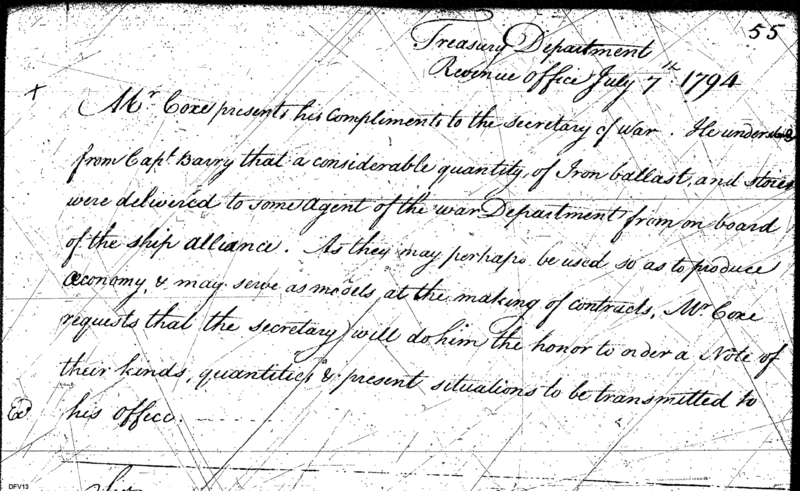 55
Treasury Department
Revenue Office July 7th 1794
x
Mr Coxe presents his Compliments to the Secretary of War. He
from Capt. Barry that a considerable quantity, of Iron ballast, and stores
were delivered to some Agent of the War Department from on board
of the ship Alliance. As they may perhaps be used so as to produce
Œconomy, & may serve as models, at the making of contracts, Mr Coxe
requests that the Secretary will do him the honor to order a Note of
their kinds, quantities & present situations to be transmitted to
his office.
DFV13